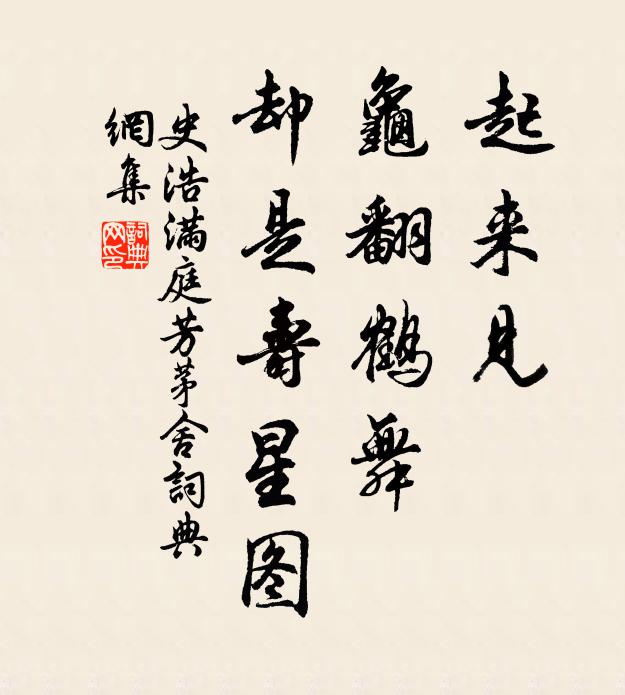 起来见
龜翻鶴舞
却是壽星图
史浩滿庭芳茅舍詞典
網集
詞典网印